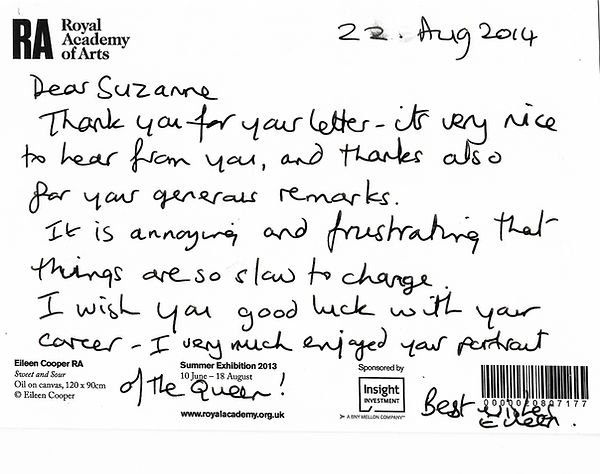 RA Royal
Academy
of Arts
22. Aug 2014
Dear Suzanne
Thank you for your letter - it's very nice
to hear from you, and thanks also
for your generous remarks.
It is annoying and frustrating that
things are so slow to change.
I wish you good luck with your
career - I very much enjoyed your portrait
of the Queen!
Best wishes
Eileen.
Eileen Cooper RA
Sweet and Sour
Oil on canvas, 120 x 90cm
© Eileen Cooper
Summer Exhibition 2013
10 June – 18 August
www.royalacademy.org.uk
Sponsored by
Insight
INVESTMENT
A BNY MELLON COMPANY
0000020807177